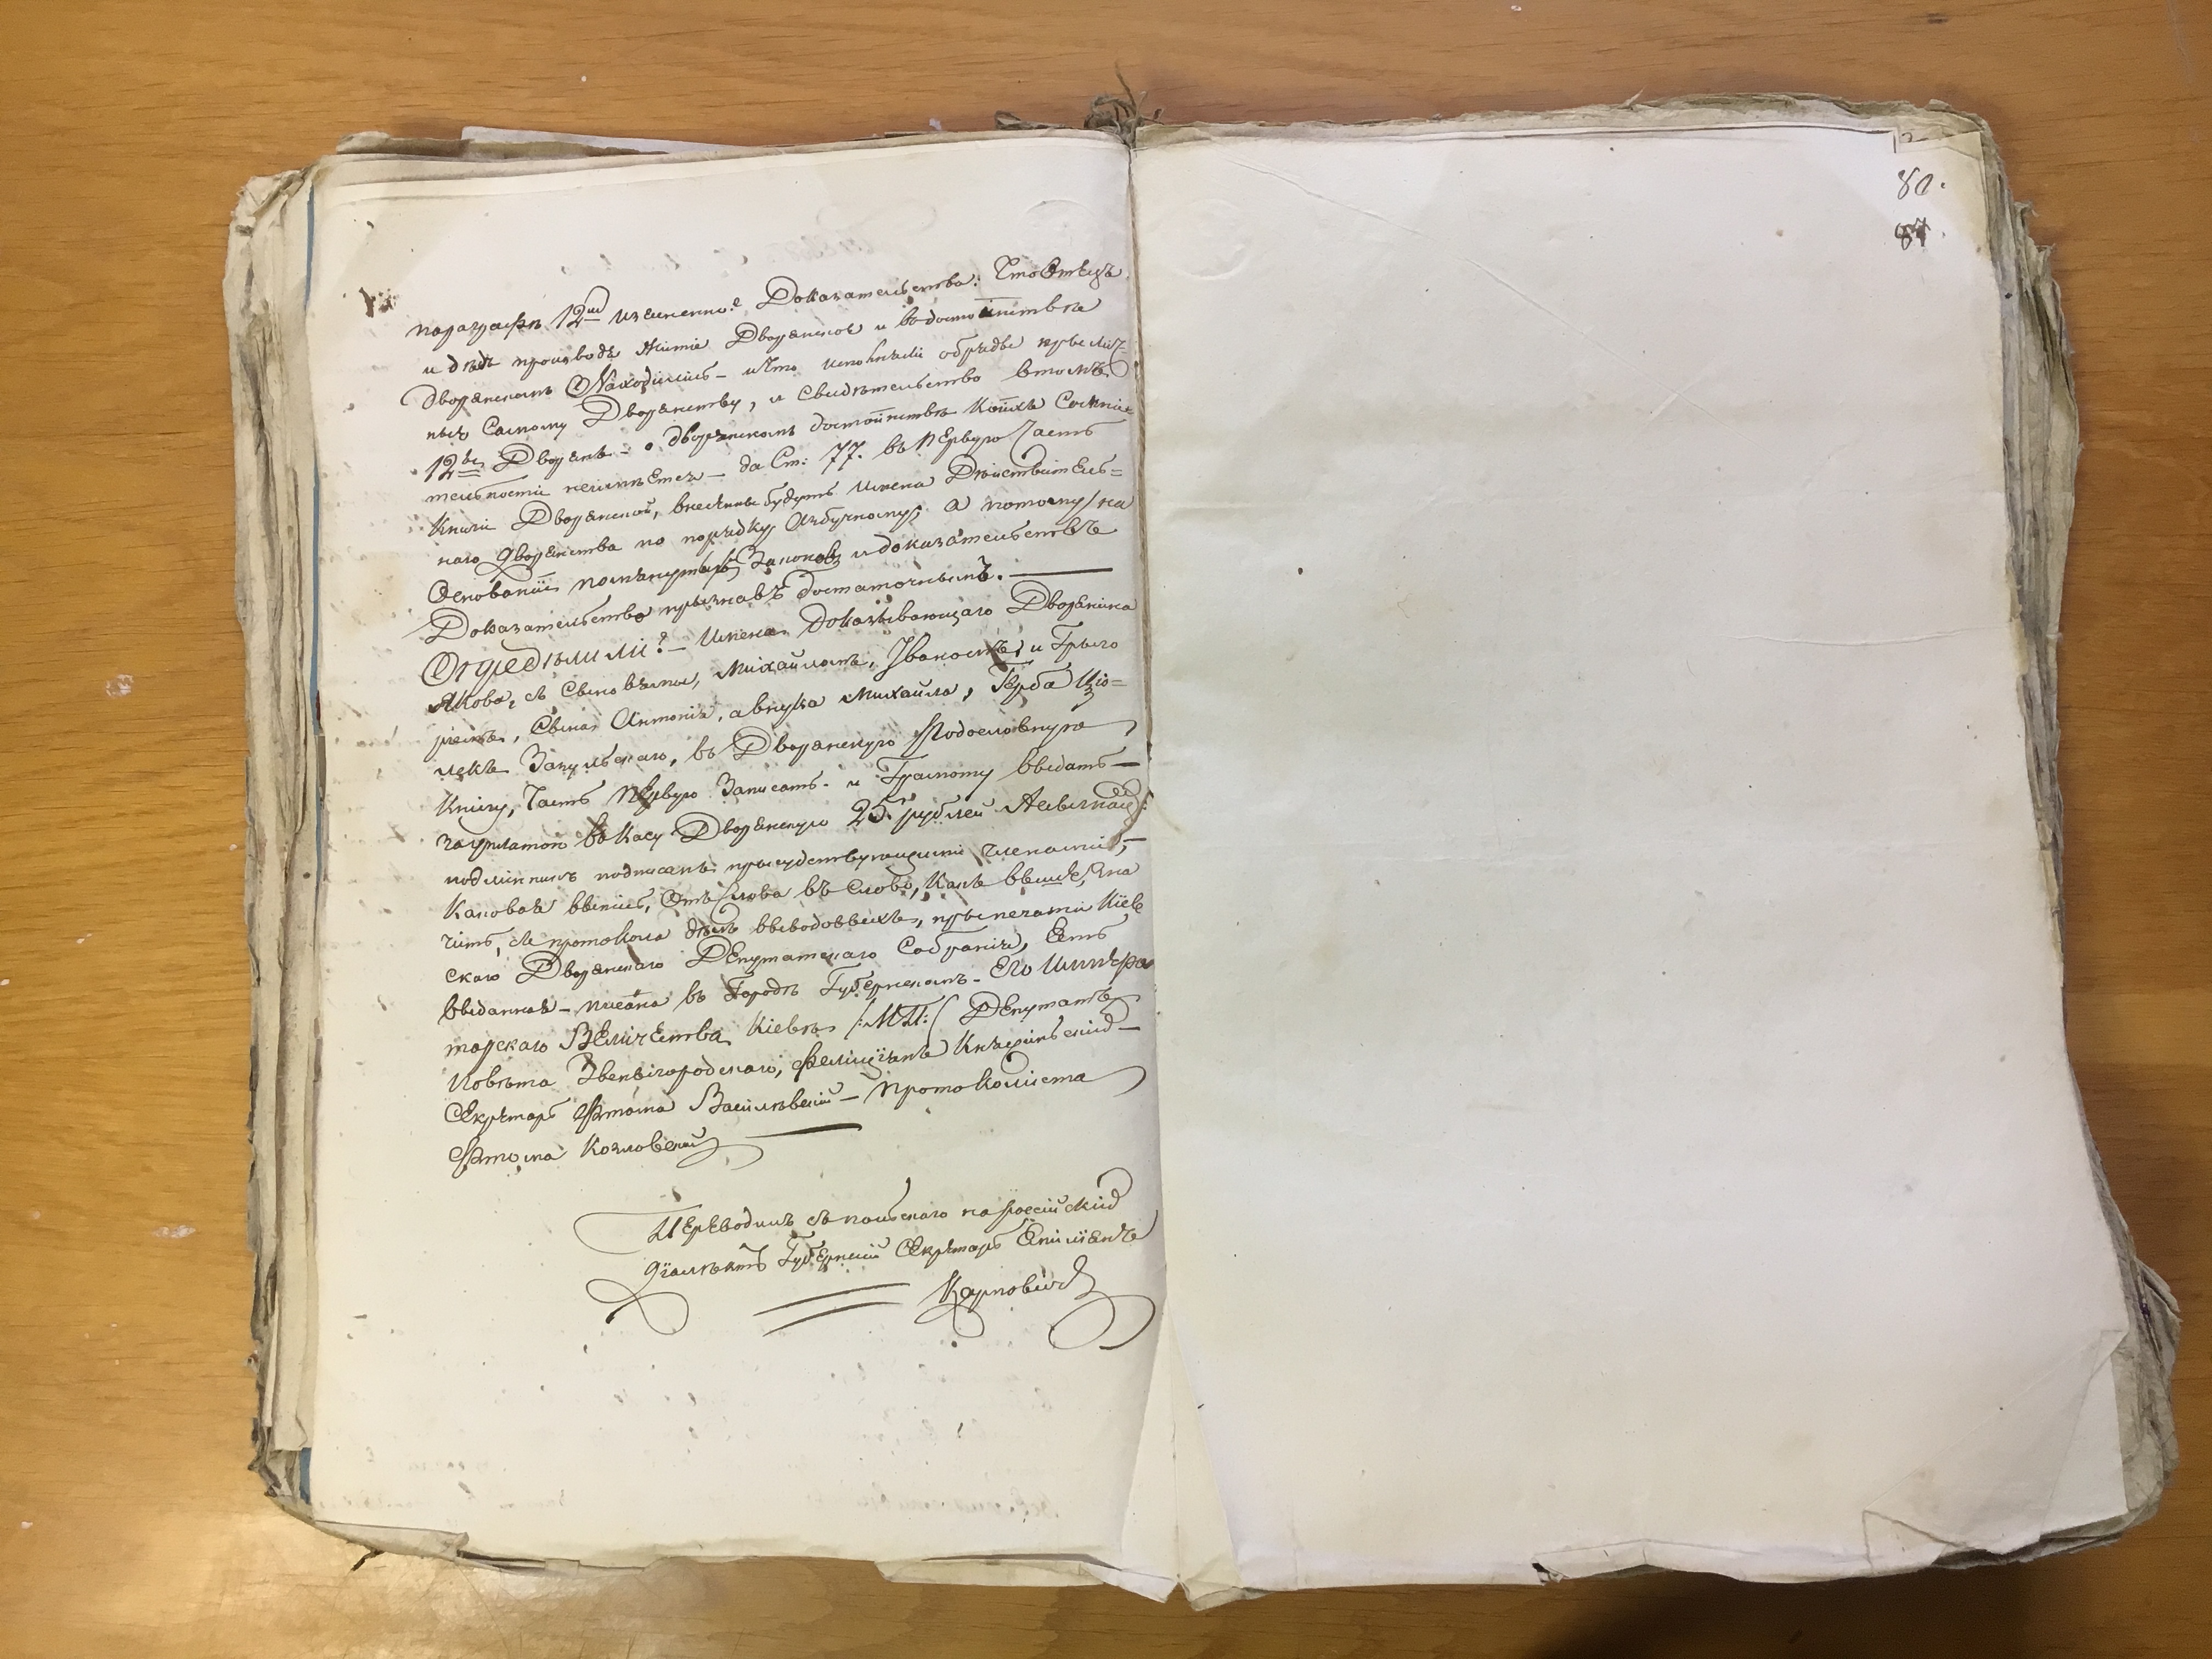 параграфъ 12й изяснено? Доказателства: Что Отецъ
и дѣдъ производъ житіе Дворянское и въ достоинствѣ
дворянскомъ Находились – и Что исполняли обряды прилич-
ныя Самому Дворянству, и Свидѣтельство въ томъ
12ти Дворянъ – о дворянскомъ достоинствѣ коихъ Сомни
тельности неимѣется – да Ст: 77. въ первую Часть
Книги Дворянской, внесенны будутъ имена Дѣйствитель=
наго дворянства по порядку Азбучному, а потому на
Основаніи помянутыхъ Законовъ и доказательствъ
Доказательство признавъ достаточнымъ. —
Опредѣлили? – имена доказывающаго Дворянина
Якова, съ Сыновьями, Михаиломъ, Иваномъ, и Григо
ріемъ, Сына Антонія, а внука Михайла, Герба
Закульскаго, въ Дворянскую Родословную
Книгу, Часть первую Записать. и Грамоту выдать —
зауплатою въ Касу Дворянскую 25. рублей
подлиннымъ подписанъ присудствующими членами, –
Каковая выпись, Отъ Слова въ Слово, Какъ выше, Зна
читъ, съ протокола дѣлъ выводовыхъ, при печати Кіев
скаго Дворянскаго Депутатскаго Собранія, Есть
выданная – писана въ Городѣ Губернскомъ – Его Импера
торскаго Величества Кіевѣ /:МП:/ Депутатъ
Повѣта Звенигородскаго, Фелиціянъ —
Секретарь Фтома Василевскій – Протоколиста
Фтома Козловский
Переводилъ съ польскаго на россійскій
діалектъ Губернскій Секретарь
Карповичъ
80.
87.